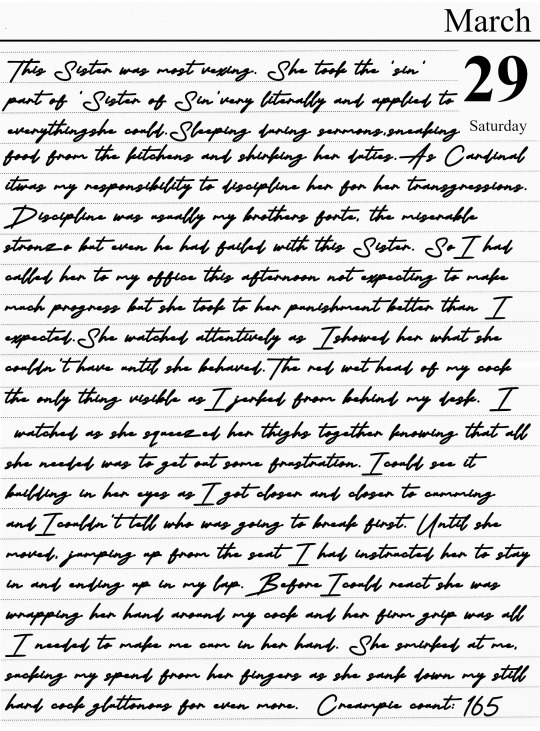 March
29
Saturday
This Sister was most vexing. She took the 'sin'
part of 'Sister of Sin'very literally and applied to
everythingshe could.Sleeping during sermons,sneaking
food from the kitchens and shirking her duties.As Cardinal
itwas my responsibility to discipline her for her transgressions.
Discipline was usually my brothers forte, the miserable
stronzo but even he had failed with this Sister. So I had
called her to my office this afternoon not expecting to make
much progress but she took to her punishment better than I
expected.She watched attentively as Ishowed her what she
couldn't have until she behaved.The red wet head of my cock
the only thing visible as I jerked from behind my desk. I
watched as she squeezed her thighs together knowing that all
she needed was to get out some frustration. Icould see it
building in her eyes as I got closer and closer to cumming
and Icouldn't tell who was going to break first. Until she
moved, jumping up from the seat I had instructed her to stay
in and ending up in my lap. Before Icould react she was
wrapping her hand around my cock and her firm grip was all
I needed to make me cum in her hand. She smirked at me,
sucking my spend from her fingers as she sank down my still
hard cock gluttonous for even more. Creampie count: 165